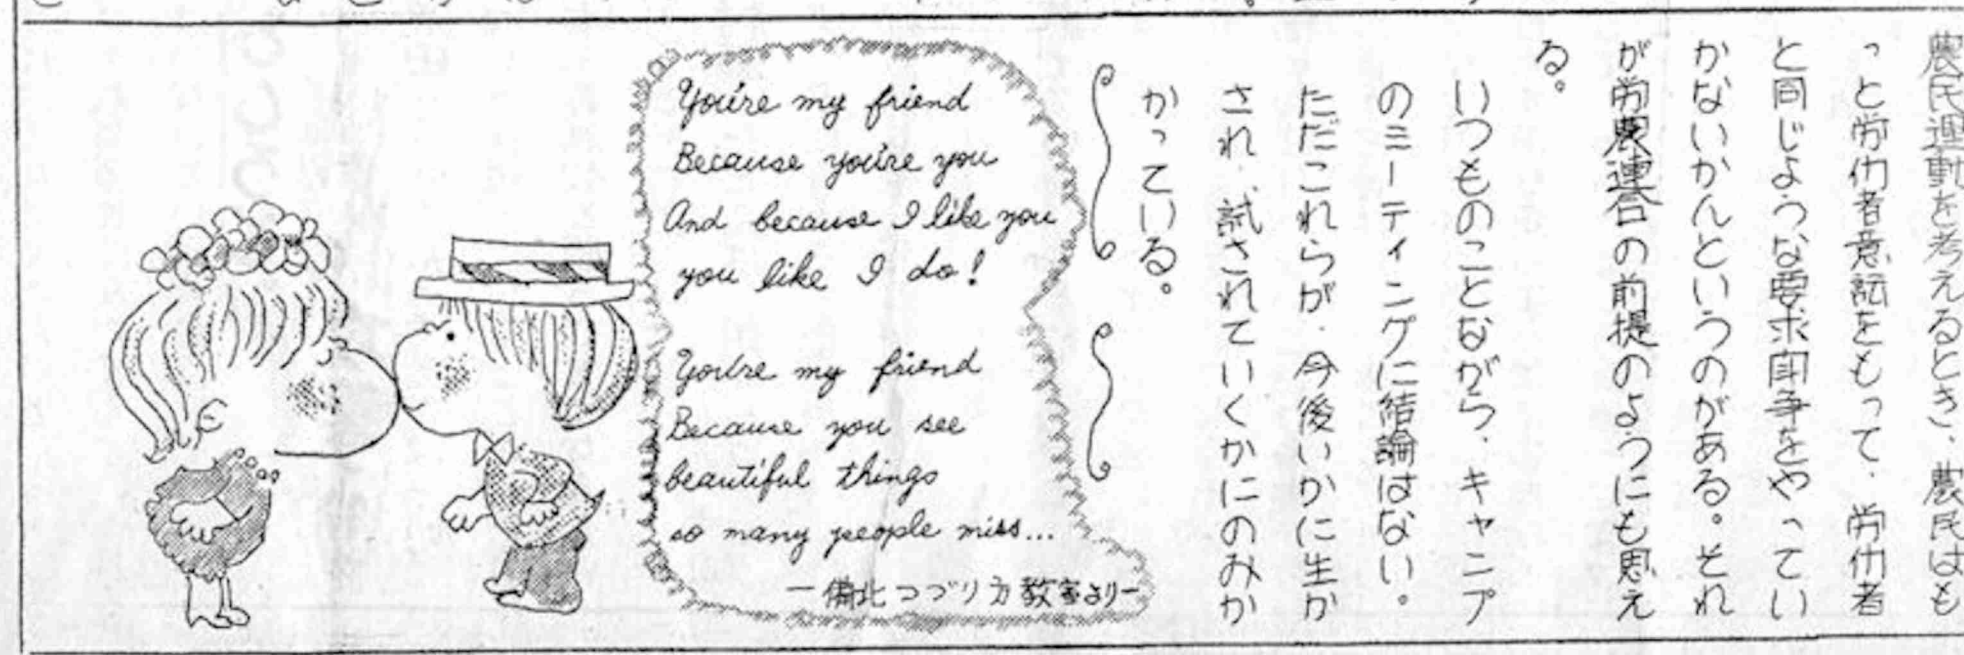 農民運動を考えるとき、農民はも
っと労仂者意識をもって、労仂者
と同じような要求闘争をやってい
かないかんというのがある。それ
が労農連合の前提のようにも思え
る。
いつものことながら、キャンプ
のミーティングに結論はない。
ただこれらが、今後いかに生か
され、試されていくかにのみか
かっている。
You're my friend
Because you're you
And because I like you
you like I do!
You're my friend
Because you see
beautiful things
so many people miss...
—備北つづり方教室より—